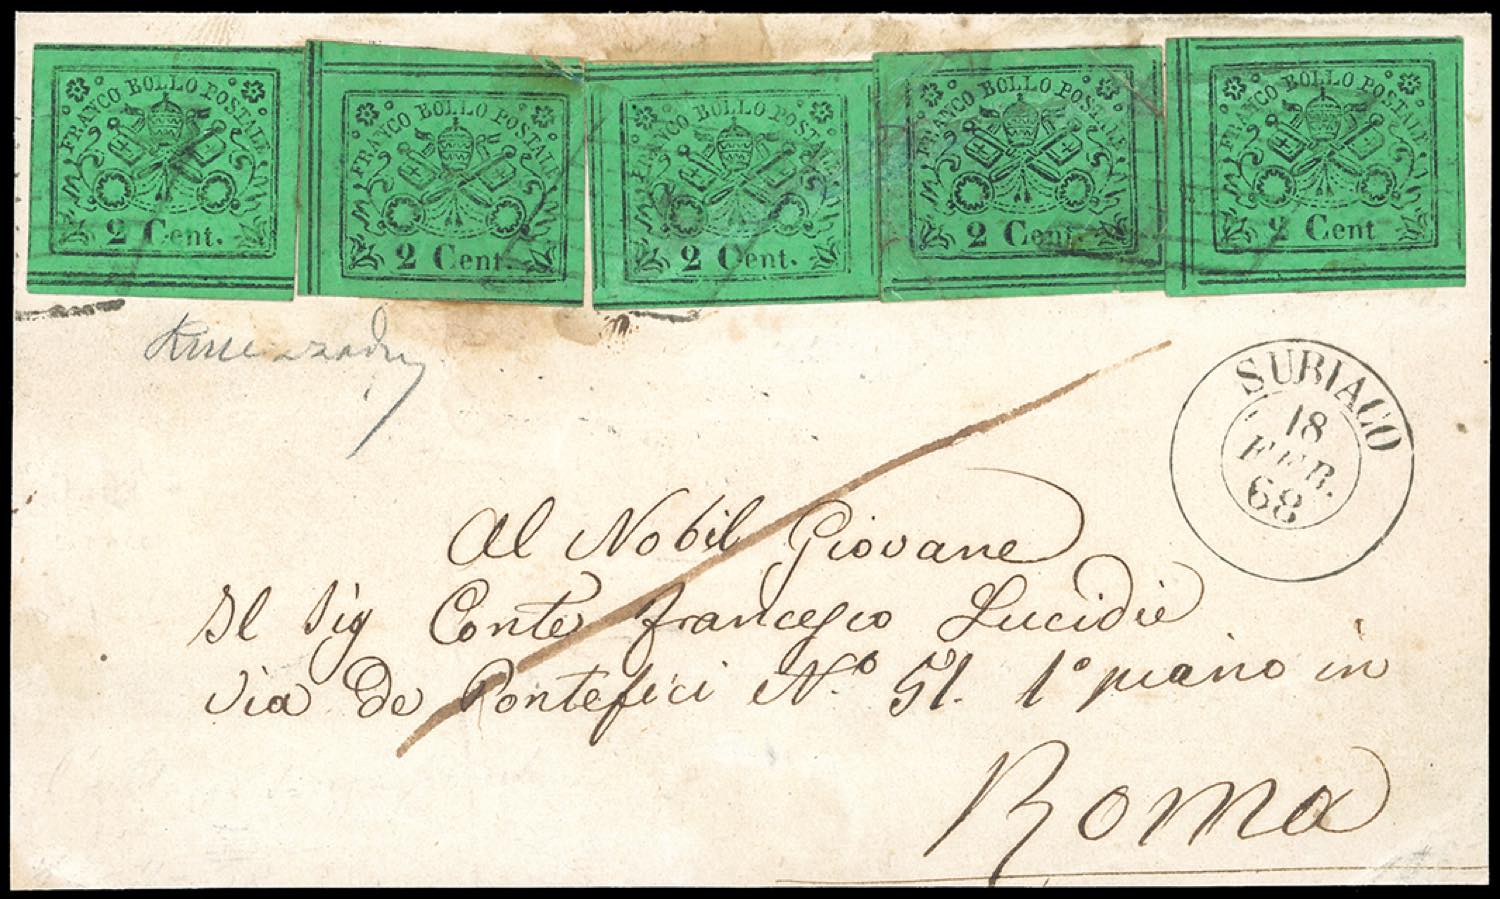 FRANCO BOLLO POSTALE
2 Cent.
FRANCO BOLLO POSTALE
2 Cent.
FRANCO BOLLO POSTALE
2 Cent.
FRANCO BOLLO POSTALE
2 Cent.
FRANCO BOLLO POSTALE
2 Cent
SUBIACO
18
FEB.
68
Al Nobil Giovane
Il Sig Conte Francesco Lucidie
Via De Pontefici N.o 51. 1o piano in
Roma